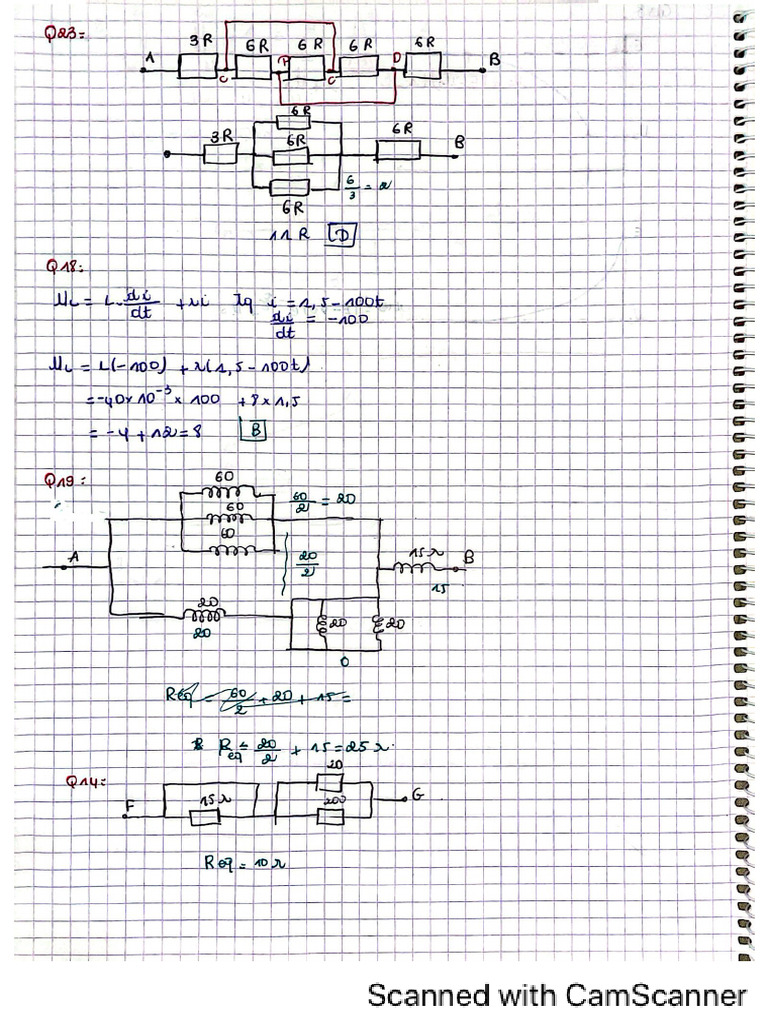 Q23:
A 3R C 6R 6R C 6R D 6R B
6R
3R 6R 6R B
6/3 = 2
6R
11R D
Q18:
UL = L. di/dt + ri Tq i = 1,5-100t
di/dt = -100
UL = L(-100) + r(1,5-100t)
= -40×10⁻³ × 100 + 8×1,5
= -4 + 12 = 8 B
Q19:
60
60/2 = 20
60
60
A 20/2 15Ω B
15
20 20 20
20
0
Req = 60/2 + 20 + 15 =
Req = 20/2 + 15 = 25Ω.
Q14:
F 15Ω 20 G
Req = 10Ω
Scanned with CamScanner